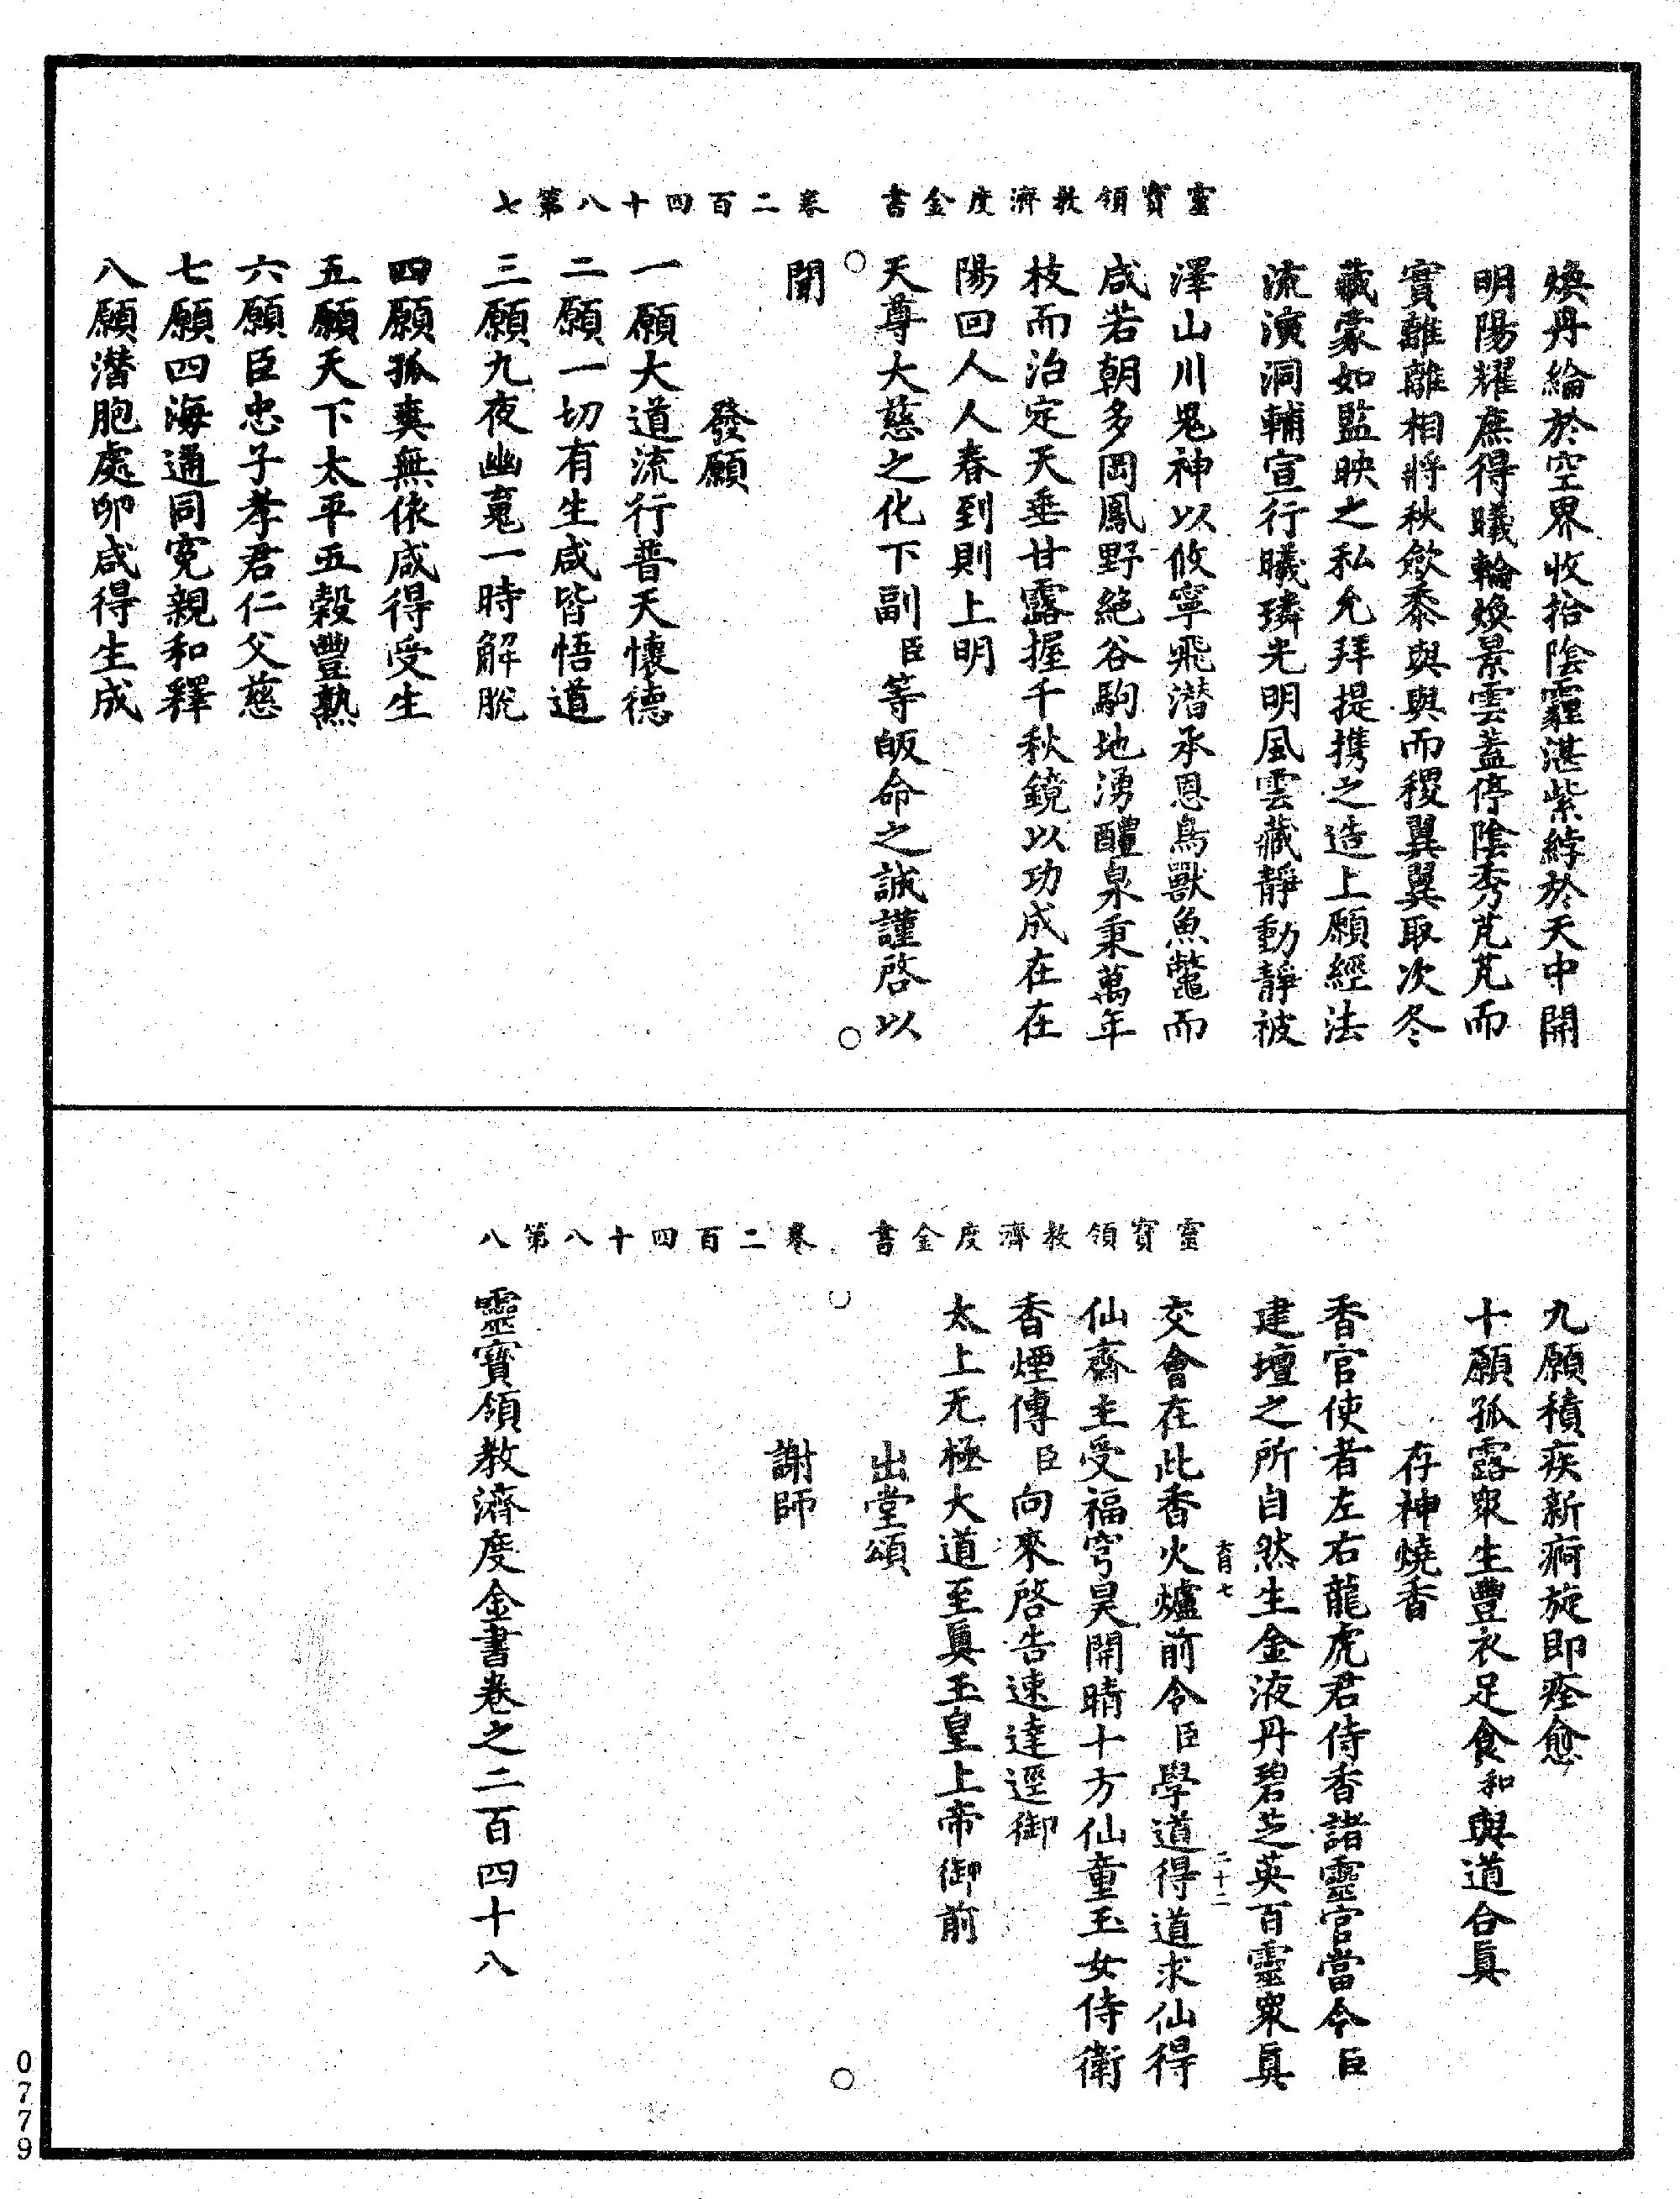 靈寶領教濟度金書 卷二百四十八第七
煥丹綸於空界收拾陰霾湛紫綍於天中開
明陽耀庶得曦輪煥景雲蓋停陰秀芃芃而
實離離相將秋斂黍與與而稷翼翼取次冬
藏豪如監映之私允拜提携之造上願經法
流演洞輔宣行曦璘光明風雲藏靜動靜被
澤山川鬼神以攸寧飛潛承恩鳥獸魚鼈而
咸若朝多岡鳳野絕谷駒地湧醴泉秉萬年
枝而治定天垂甘露握千秋鏡以功成在在
陽回人人春到則上明
天尊大慈之化下副臣等皈命之誠謹啓以
聞
發願
一願大道流行普天懷德
二願一切有生咸皆悟道
三願九夜幽䰟一時解脫
四願孤爽無依咸得受生
五願天下太平五穀豐熟
六願臣忠子孝君仁父慈
七願四海通同冤親和釋
八願潛胞處卵咸得生成
靈寶領教濟度金書 卷二百四十八第八
九願積疾新痾旋即痊愈
十願孤露衆生豐衣足食和與道合眞
存神燒香
香官使者左右龍虎君侍香諸靈官當令臣
建壇之所自然生金液丹碧芝英百靈衆眞
交會在此香火爐前令臣學道得道求仙得
仙齋主受福穹昊開晴十方仙童玉女侍衛
香煙傳臣向來啓告速達逕御
太上无極大道至眞玉皇上帝御前
出堂頌
謝師
靈寶領教濟度金書卷之二百四十八
二十二
0779